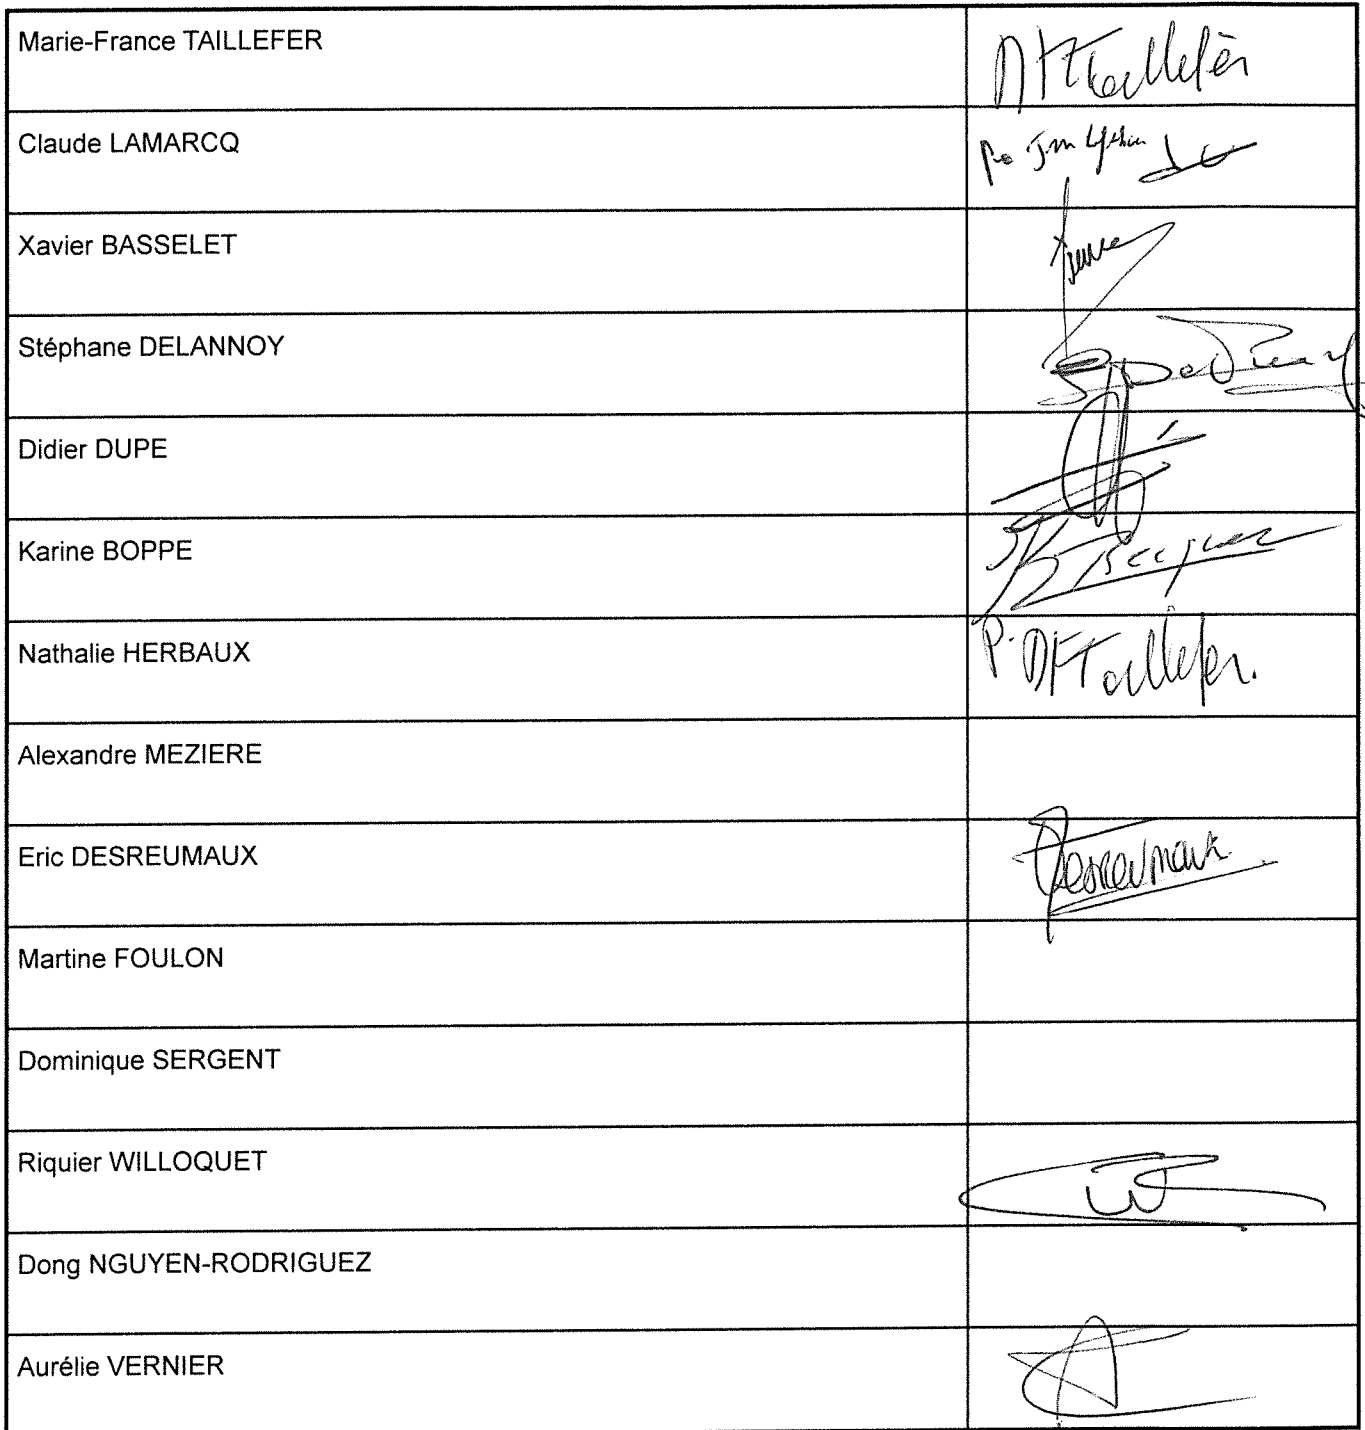 Marie-France TAILLEFER
MFTaillefer
Claude LAMARCQ
Xavier BASSELET
Stéphane DELANNOY
Didier DUPE
Karine BOPPE
Nathalie HERBAUX
P. MFTaillefer.
Alexandre MEZIERE
Eric DESREUMAUX
Desreumaux
Martine FOULON
Dominique SERGENT
Riquier WILLOQUET
Dong NGUYEN-RODRIGUEZ
Aurélie VERNIER